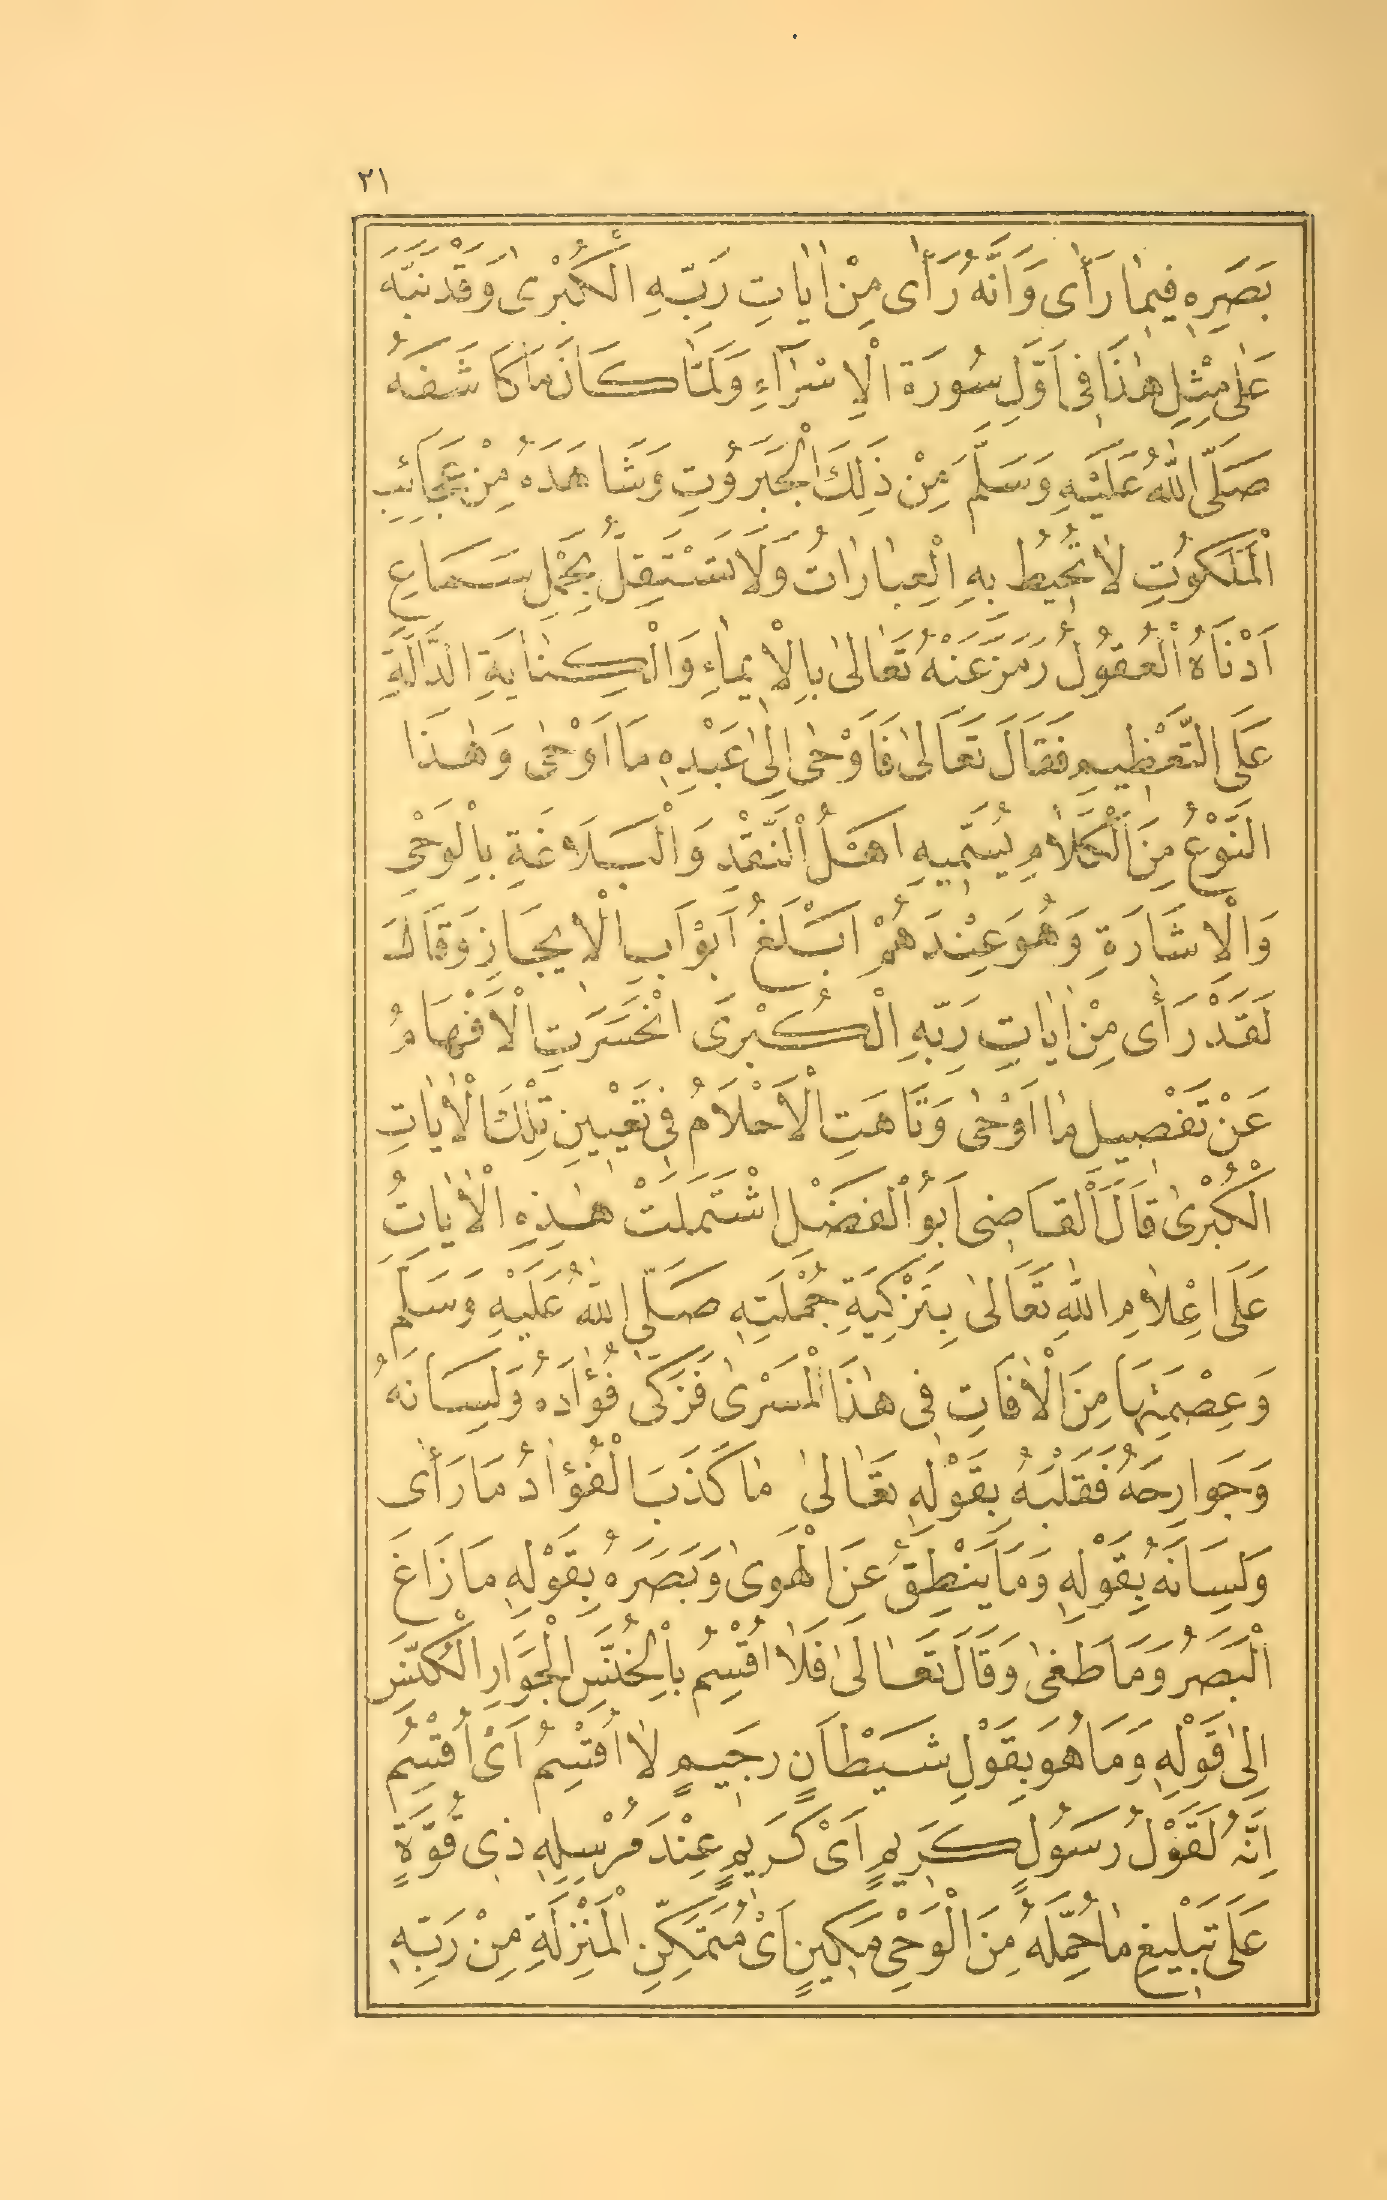 ٢١
بَصَرِهِ فِيمَا رَأَى وَأَنَّهُ رَأَى مِنْ اٰيَاتِ رَبِّهِ الْكُبْرٰى وَقَدْ نَبَّهَ
عَلٰى مِثْلِ هٰذَا فِى اَوَّلِ سُورَةِ الْاِسْرَآءِ وَلَمَّا كَانَ مَا كَاشَفَهُ
صَلَّى اللّٰهُ عَلَيْهِ وَسَلَّمَ مِنْ ذَلِكَ الْجَبَرُوْتِ وَشَاهَدَهُ مِنْ عَجَائِبِ
الْمَلَكُوْتِ لَا تُحِيْطُ بِهِ الْعِبَارَاتُ وَلَا تَسْتَقِلُّ بِحَمْلِ سَمَاعِ
اَدْنَاهُ الْعُقُوْلُ رَمَزَ عَنْهُ تَعَالٰى بِالْاِيْمَاءِ وَالْكِنَايَةِ الدَّالَّةِ
عَلَى التَّعْظِيْمِ فَقَالَ تَعَالٰى فَاَوْحٰى اِلٰى عَبْدِهِ مَا اَوْحٰى وَهٰذَا
النَّوْعُ مِنَ الْكَلَامِ يُسَمِّيْهِ اَهْلُ النَّقْدِ وَالْبَلَاغَةِ بِالْوَحْىِ
وَالْاِشَارَةِ وَهُوَ عِنْدَهُمْ اَبْلَغُ اَبْوَابِ الْاِيْجَازِ وَقَالَ
لَقَدْ رَأَى مِنْ اٰيَاتِ رَبِّهِ الْكُبْرَى انْحَسَرَتِ الْاَفْهَامُ
عَنْ تَفْصِيْلِ مَا اَوْحٰى وَتَاهَتِ الْاَحْلَامُ فِى تَعْيِيْنِ تِلْكَ الْاٰيَاتِ
الْكُبْرٰى قَالَ الْقَاضِى اَبُو الْفَضْلِ اشْتَمَلَتْ هٰذِهِ الْاٰيَاتُ
عَلَى اِعْلَامِ اللّٰهِ تَعَالٰى بِتَزْكِيَةِ جُمْلَتِهِ صَلَّى اللّٰهُ عَلَيْهِ وَسَلَّمَ
وَعِصْمَتِهَا مِنَ الْاٰفَاتِ فِى هٰذَا الْمَسْرٰى فَزَكّٰى فُؤَادَهُ وَلِسَانَهُ
وَجَوَارِحَهُ فَقَلْبَهُ بِقَوْلِهِ تَعَالٰى مَا كَذَبَ الْفُؤَادُ مَا رَأَى
وَلِسَانَهُ بِقَوْلِهِ وَمَا يَنْطِقُ عَنِ الْهَوٰى وَبَصَرَهُ بِقَوْلِهِ مَا زَاغَ
الْبَصَرُ وَمَا طَغٰى وَقَالَ تَعَالٰى فَلَا اُقْسِمُ بِالْخُنَّسِ الْجَوَارِ الْكُنَّسِ
اِلٰى قَوْلِهِ وَمَا هُوَ بِقَوْلِ شَيْطَانٍ رَجِيْمٍ لَا اُقْسِمُ اَىْ اُقْسِمُ
اِنَّهُ لَقَوْلُ رَسُوْلٍ كَرِيْمٍ اَىْ كَرِيْمٍ عِنْدَ مُرْسِلِهِ ذِى قُوَّةٍ
عَلَى تَبْلِيْغِ مَا حُمِّلَهُ مِنَ الْوَحْىِ مَكِيْنٍ اَىْ مُتَمَكِّنِ الْمَنْزِلَةِ مِنْ رَبِّهِ